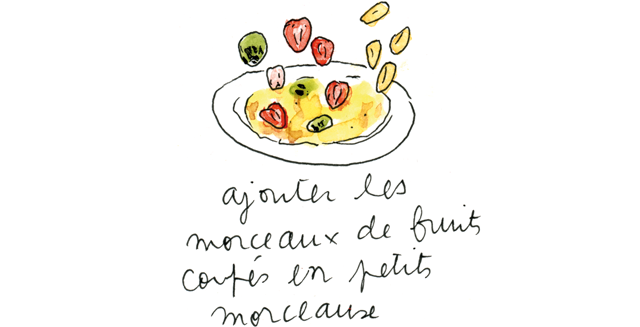 ajouter les
morceaux de fruits
coupés en petits
morceaux